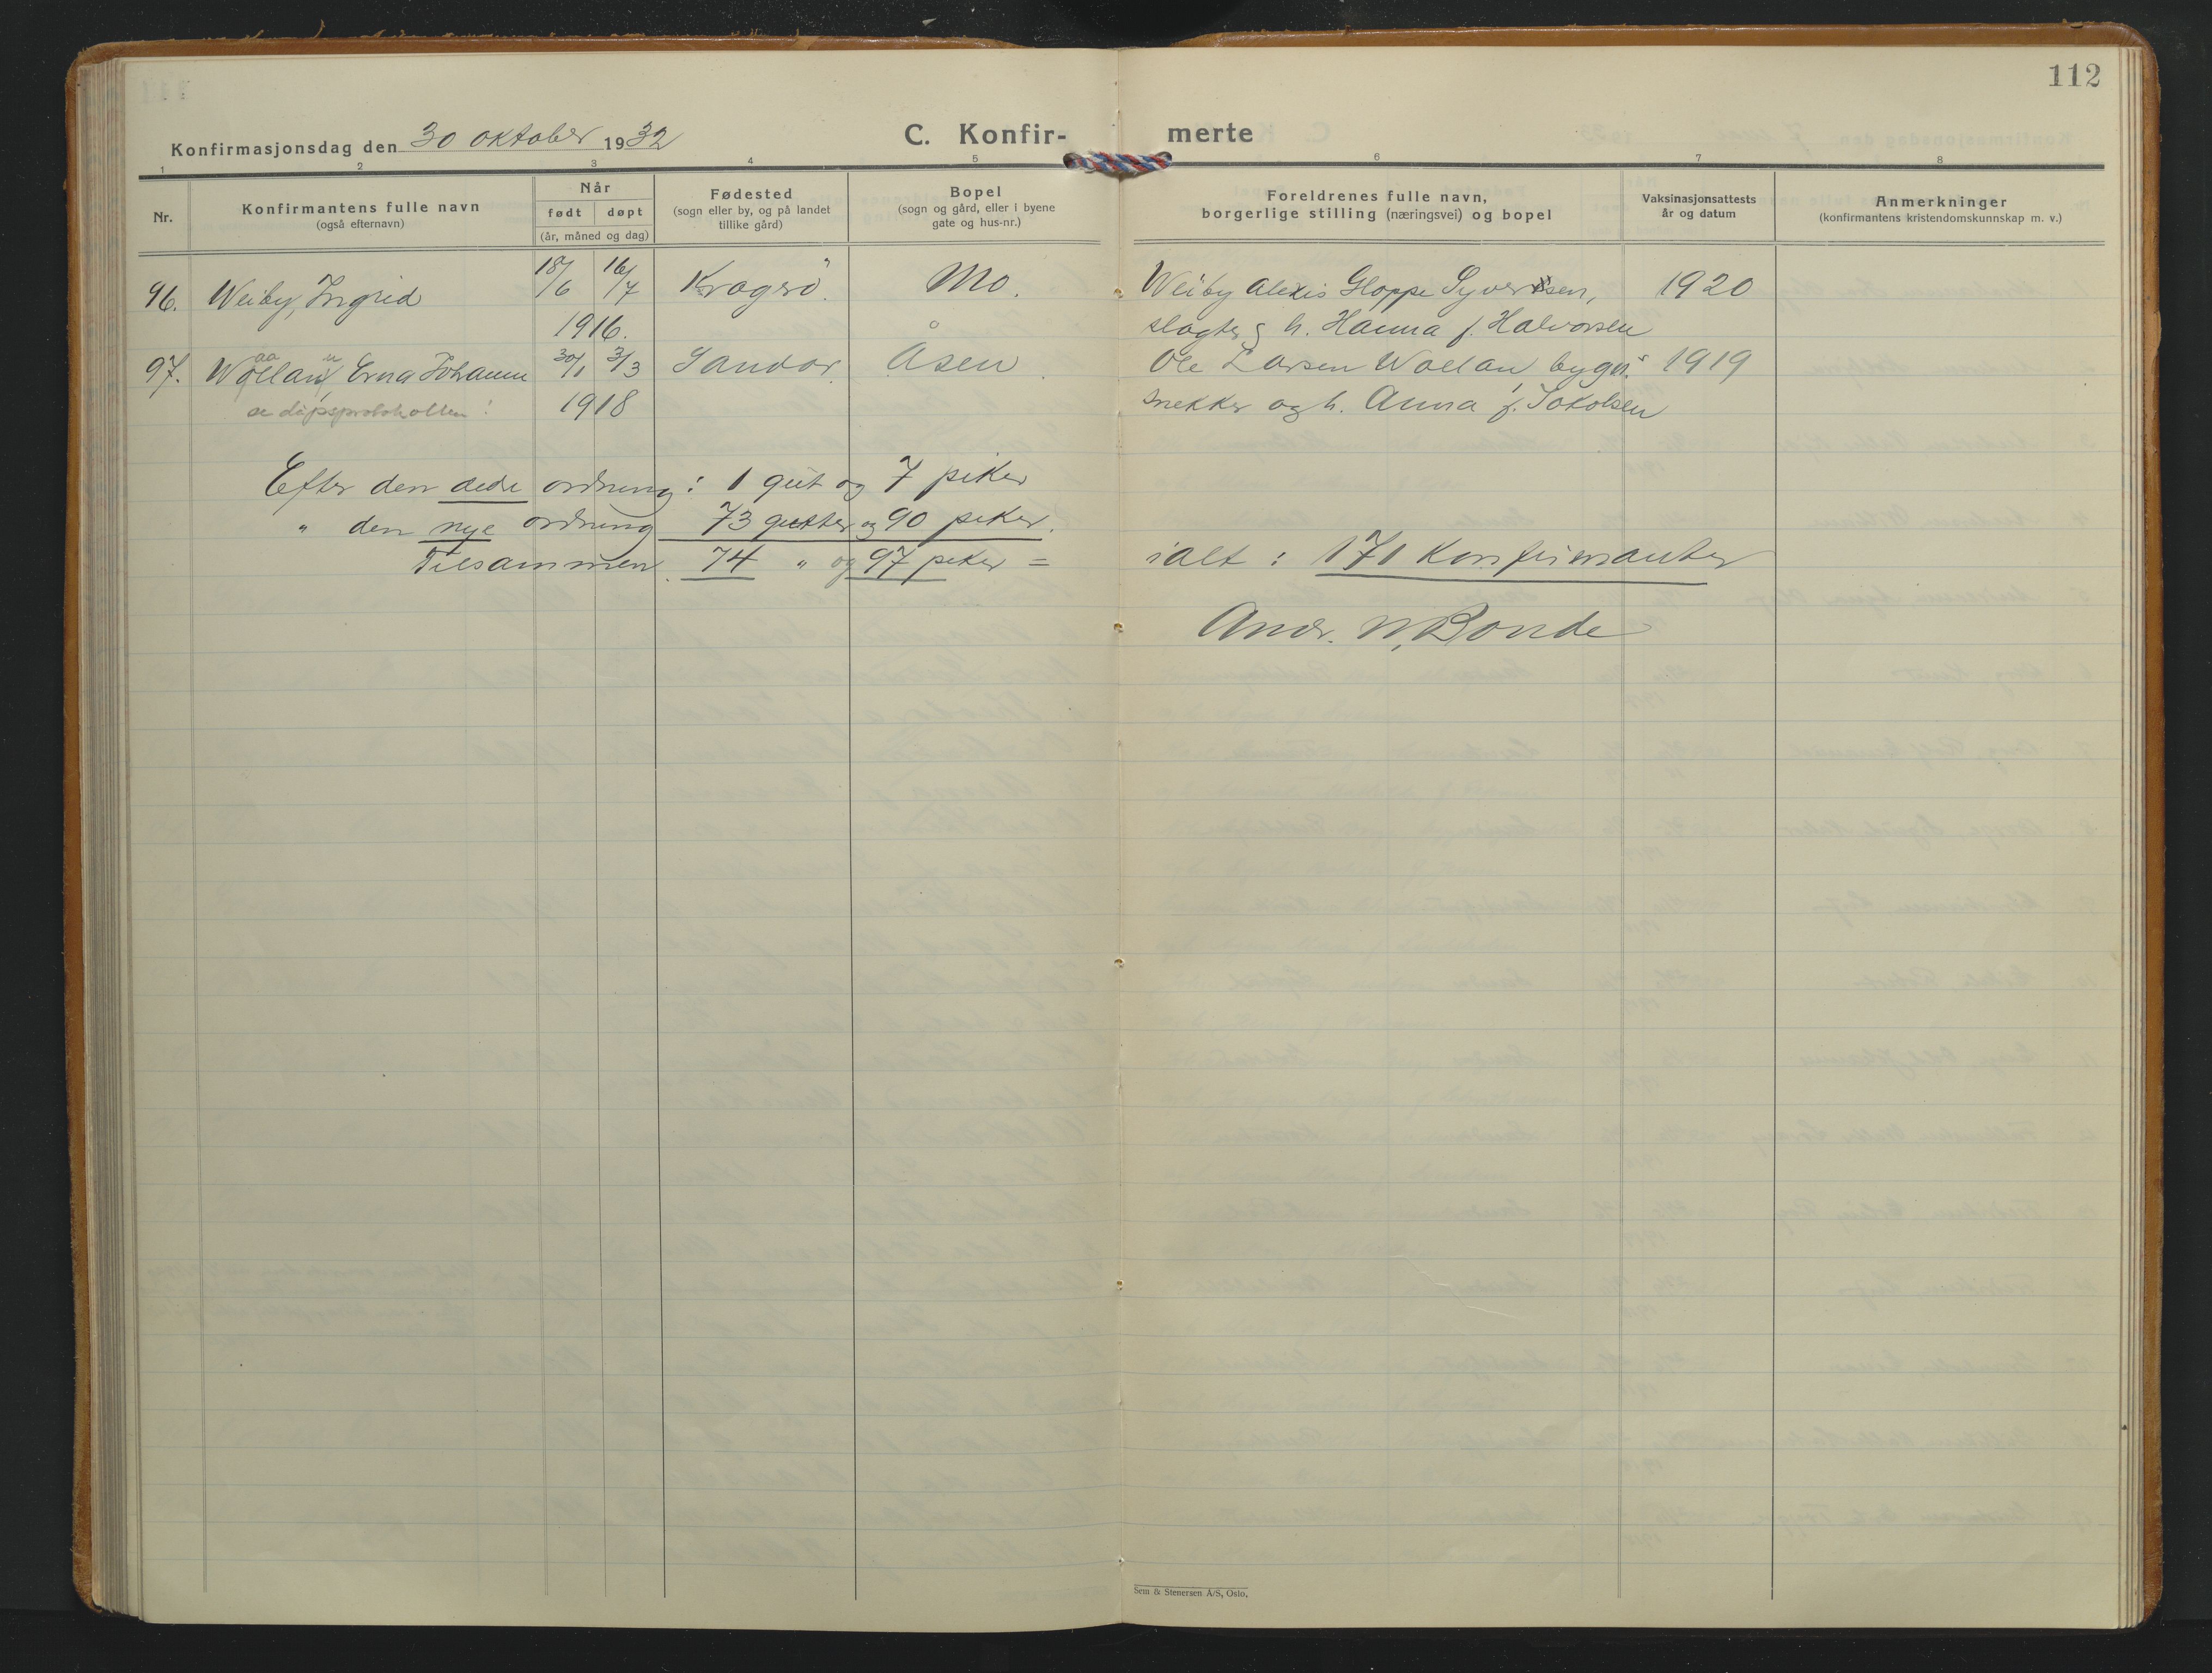 112
Konfirmasjonsdag den 30 oktober 1932
C. Konfir- merte
1 2 3 4 5 6 7 8
Nr.
Konfirmantens fulle navn
(også efternavn)
Når
født døpt
(år, måned og dag)
Fødested
(sogn eller by, og på landet
tillike gård)
Bopel
(sogn og gård, eller i byene
gate og hus-nr.)
Foreldrenes fulle navn,
borgerlige stilling (næringsvei) og bopel
Vaksinasjonsattests
år og datum
Anmerkninger
(konfirmantens kristendomskunnskap m. v.)
96. Weiby, Ingrid 18/6 16/7 Kragerö. Mo. Weiby Alexis Gloppe Syversen, 1920
1916. slagter og h. Hanna f. Halvorsen
97. Wollan, Erna Johanne 30/1 3/3 Sandar. Åsen. Ole Larsen Wollan, bygn. 1919
1918 snekker og h. Anna f. Jakobsen
Efter den eldre ordning: 1 gut og 7 piker
" den nye ordning 73 gutter og 90 piker.
Tilsammen 74 " og 97 piker = ialt: 171 konfirmanter
Andr. N. Bonde
Sem & Stenersen A/S, Oslo.